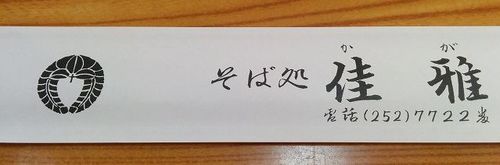 か が
そば処 佳雅
電話(252)7722番